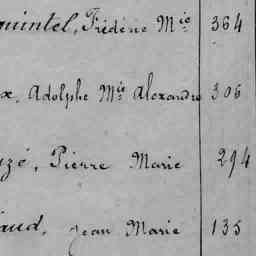 quintel, Frédéric Mie 364
x, Adolphe Mis Alexandre 306
uzé, Pierre Marie 294
aud, Jean Marie 135